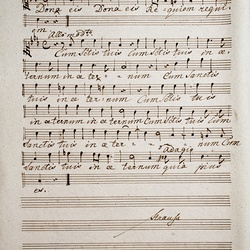 Dona eis Dona eis Requiem requi-
em Allo modto
Cum Stis tuis Cum Stis tuis in ae
ternum in ae ter num Cum Sanctis
tuis in ae ter num Cum Stis tuis
in aeternum in aeternum Cum Stis tuis Cum
Sanctis tuis in ae ter num Cum
Adagio
Sanctis tuis in ae ternum quia pius
es.
Strauss